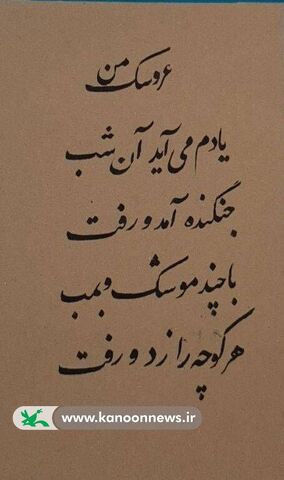 عروسک من
یادم می آید آن شب
جنگنده آمد و رفت
با چند موشک و بمب
هر کوچه را زد و رفت
www.kanoonnews.ir